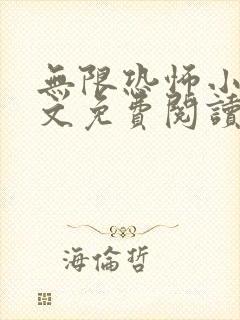 無限恐怖小
文免費閱讀
海倫哲